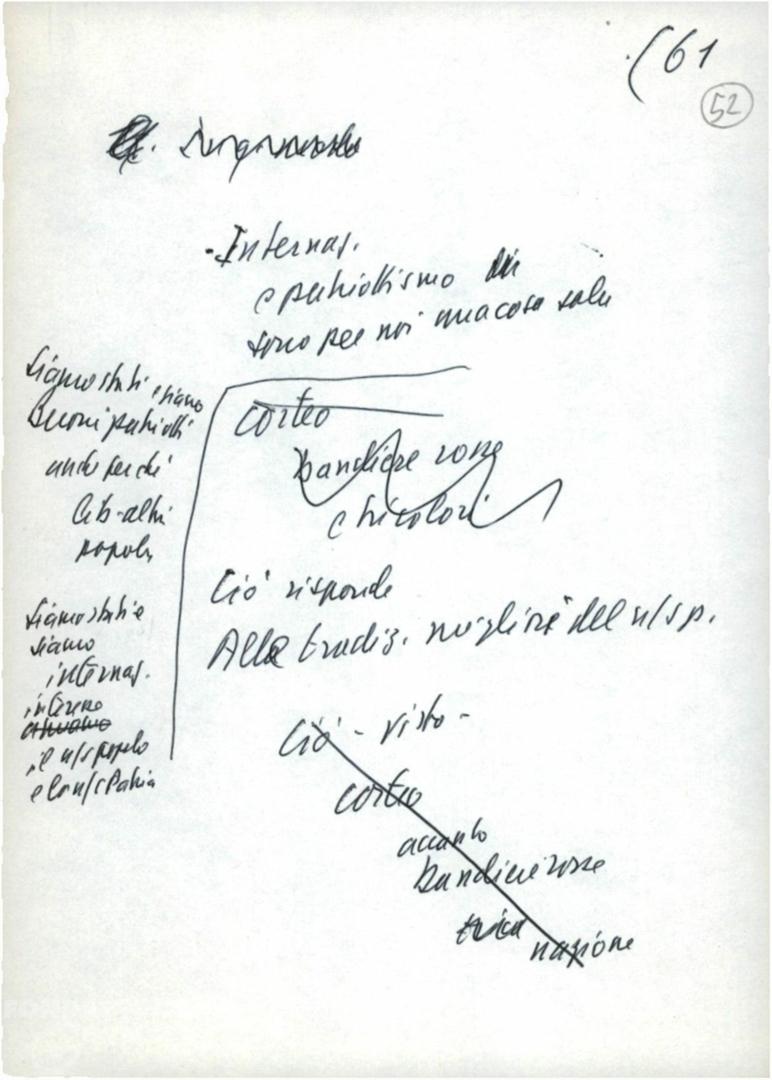 (61
52
- Internaz.
e patriottismo
sono per noi una cosa sola
siamo stati e siamo
buoni patrioti
anche perché
lib- altri
popoli
siamo stati e
siamo
internaz.
il n/s popolo
e la n/s Patria
corteo
bandiere rosse
e tricolori
Ciò risponde
Alle tradiz. migliori del n/s p.
Ciò - visto -
corteo
accanto
bandiere rosse
nazione